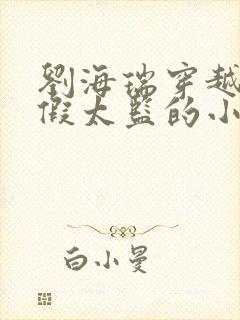 劉海瑞穿越
假太監的小
白小曼